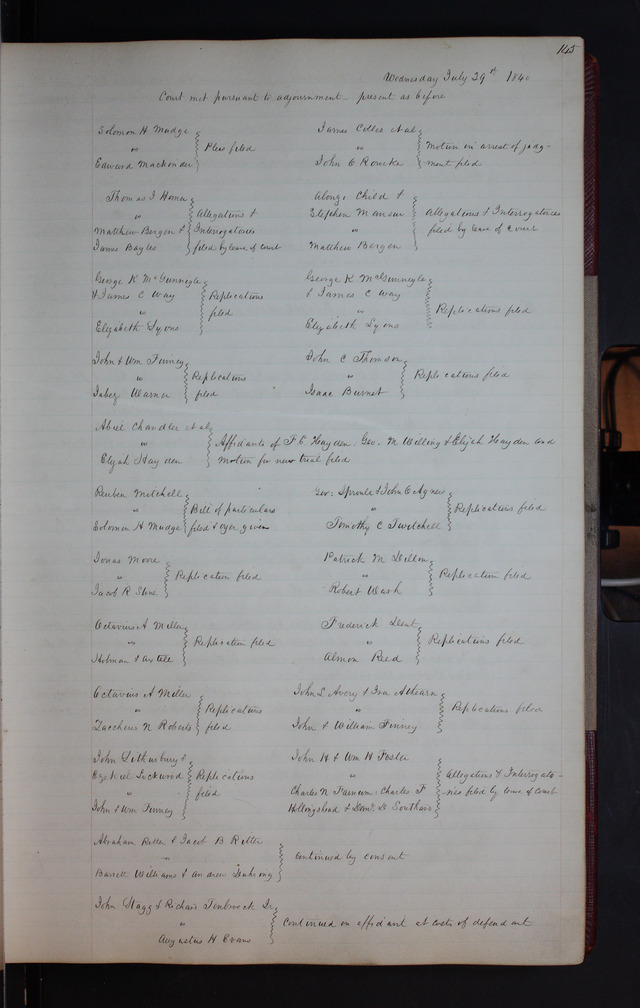 145
Wednesday July 29th 1840
Court met pursuant to adjournment present as before
Solomon H Mudge
vs
Edward Mackinder
Pleas filed
James Colles et al
vs
John C
Motion in arrest of judg-
ment filed
Thomas J Homer
vs
Matthew Bergen &
James Bayles
Allegations &
Interrogatories
filed by leave of court
Alonzo Child &
Stephen Mansur
vs
Matthew Bergen
Allegations & Interrogatories
filed by leave of court
George K McGunnegle
& James C Way
vs
Elizabeth Lyons
Replications
filed
George K McGunnegle
& James C Way
vs
Elizabeth Lyons
Replications filed
John & Wm Finney
vs
Jabez Warner
Replications
filed
John C Thomson
vs
Isaac Burnet
Replications filed
Abiel Chandler et al
vs
Elijah Hayden
Affidavits of F. C. Hayden, Geo. M Welling & Elijah Hayden and
motion for new trial filed
Reuben Mitchell
vs
Solomon H Mudge
Bill of particulars
filed & oyer given
Geo: Sproule & John C Agnew
vs
Timothy C Twitchell
Replications filed
Jonas Moore
vs
Jacob R Stine
Replication filed
Patrick M Dillon
vs
Robert Wash
Replication filed
Octavius A Miller
vs
Holman & Axtell
Replication filed
Frederick Dent
vs
Almon Reed
Replications filed
Octavius A Miller
vs
Zaccheus N Roberts
Replications
filed
John L Avery & Ira Athearn
vs
John & William Finney
Replications filed
John Lithusbury &
Ezekiel Lockwood
vs
John & Wm Finney
Replications
filed
John H & Wm H Foster
vs
Charles N Farnum, Charles F
Hollingshead & D Southard
Allegations & Interrogato-
ries filed by leave of court
Abraham Ritter & Jacob B Ritter
vs
Barrett Williams & Andrew
continued by consent
John Stagg & Richard Tenbroeck Sr
vs
Augustus H Evans
Continued on affidavit at costs of defendant